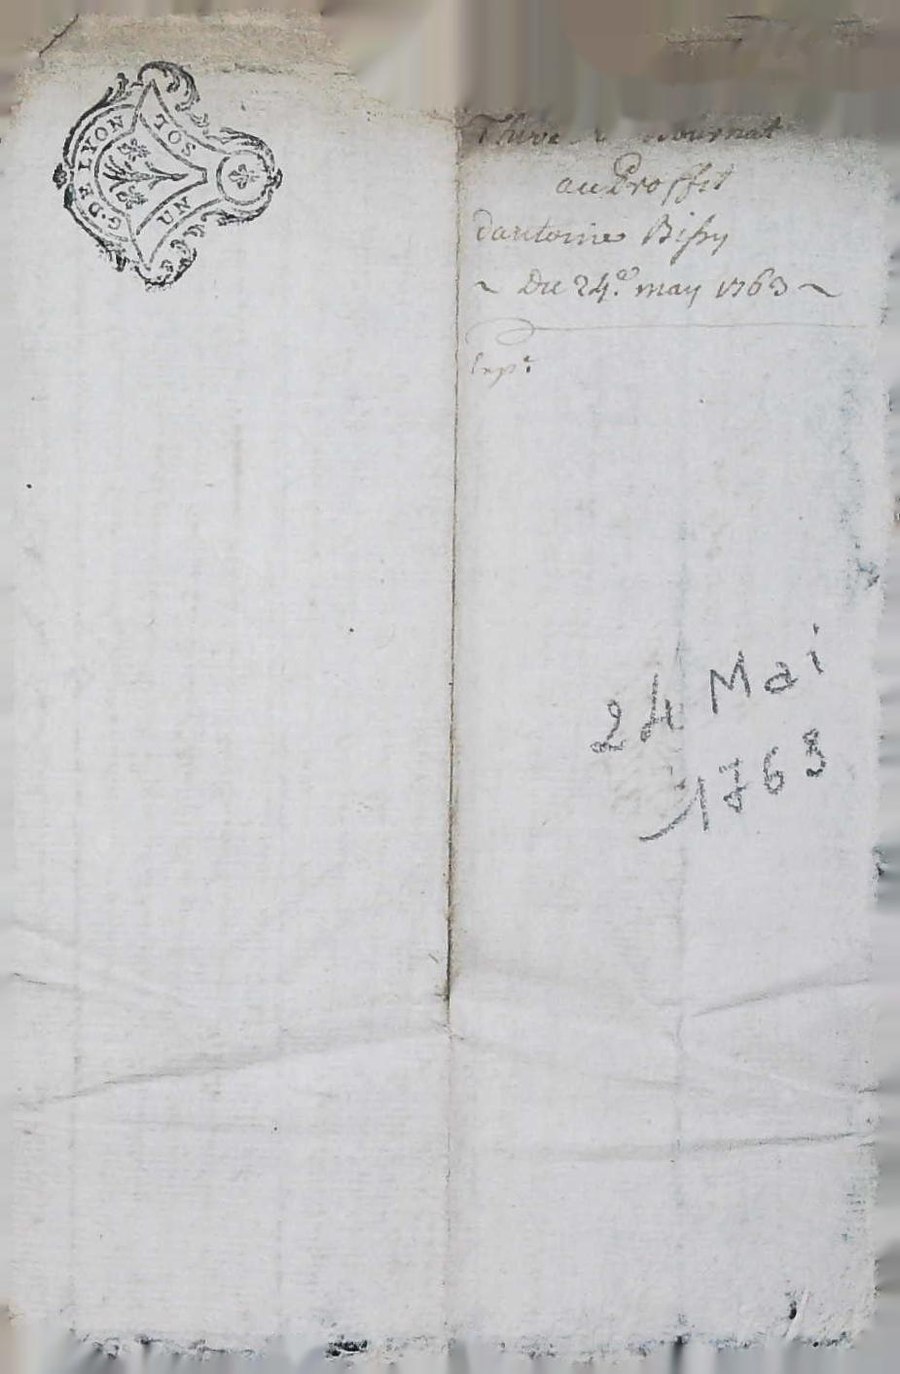 G. DE LYON
UN SOL
au Proffit
dantoine Bissy
~ Du 24.e may 1763 ~
Exp.e
24 Mai
1763